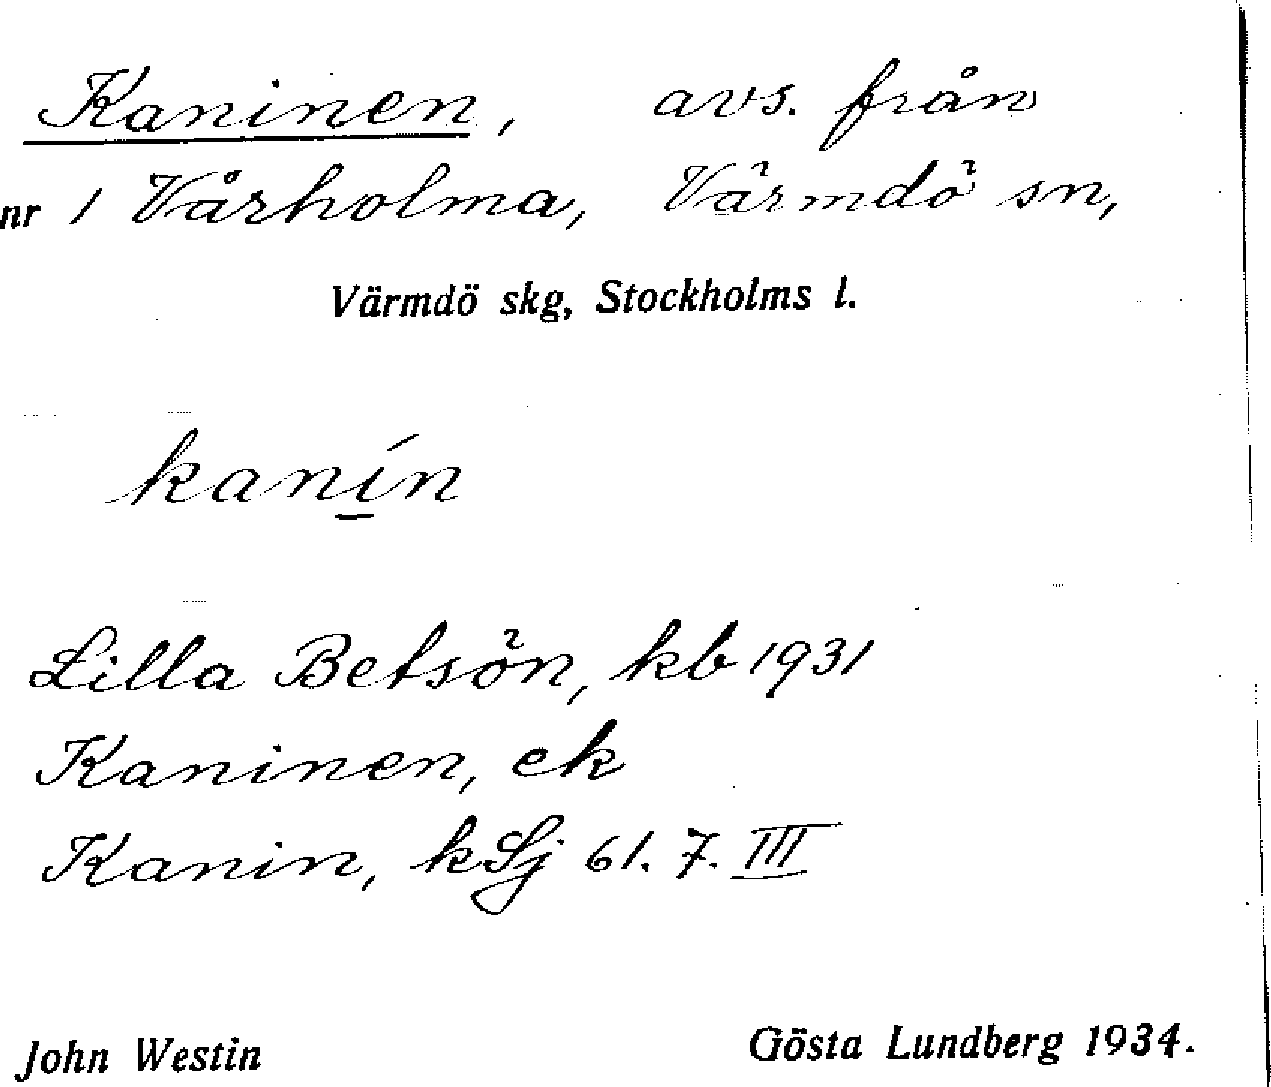 Kaninen, avs. från
nr 1 Vårholma, Värmdö sn,
Värmdö skg, Stockholms l.
kanín
Lilla Betsön, kb 1931
Kaninen, ek
Kanin, kSj 61.7.III
John Westin Gösta Lundberg 1934.